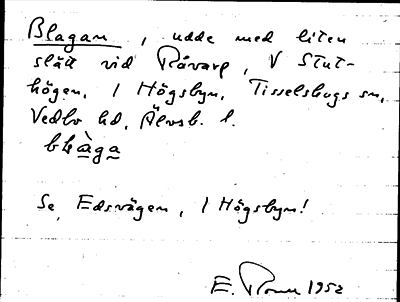 Blagan, udde med liten
slätt vid Råvarp, V Stut-
högen, 1 Högsbyn, Tisselskogs sn,
Vedbo hd, Älvsb. l.
blàga
Se Edsvägen, 1 Högsbyn!
E. 1952